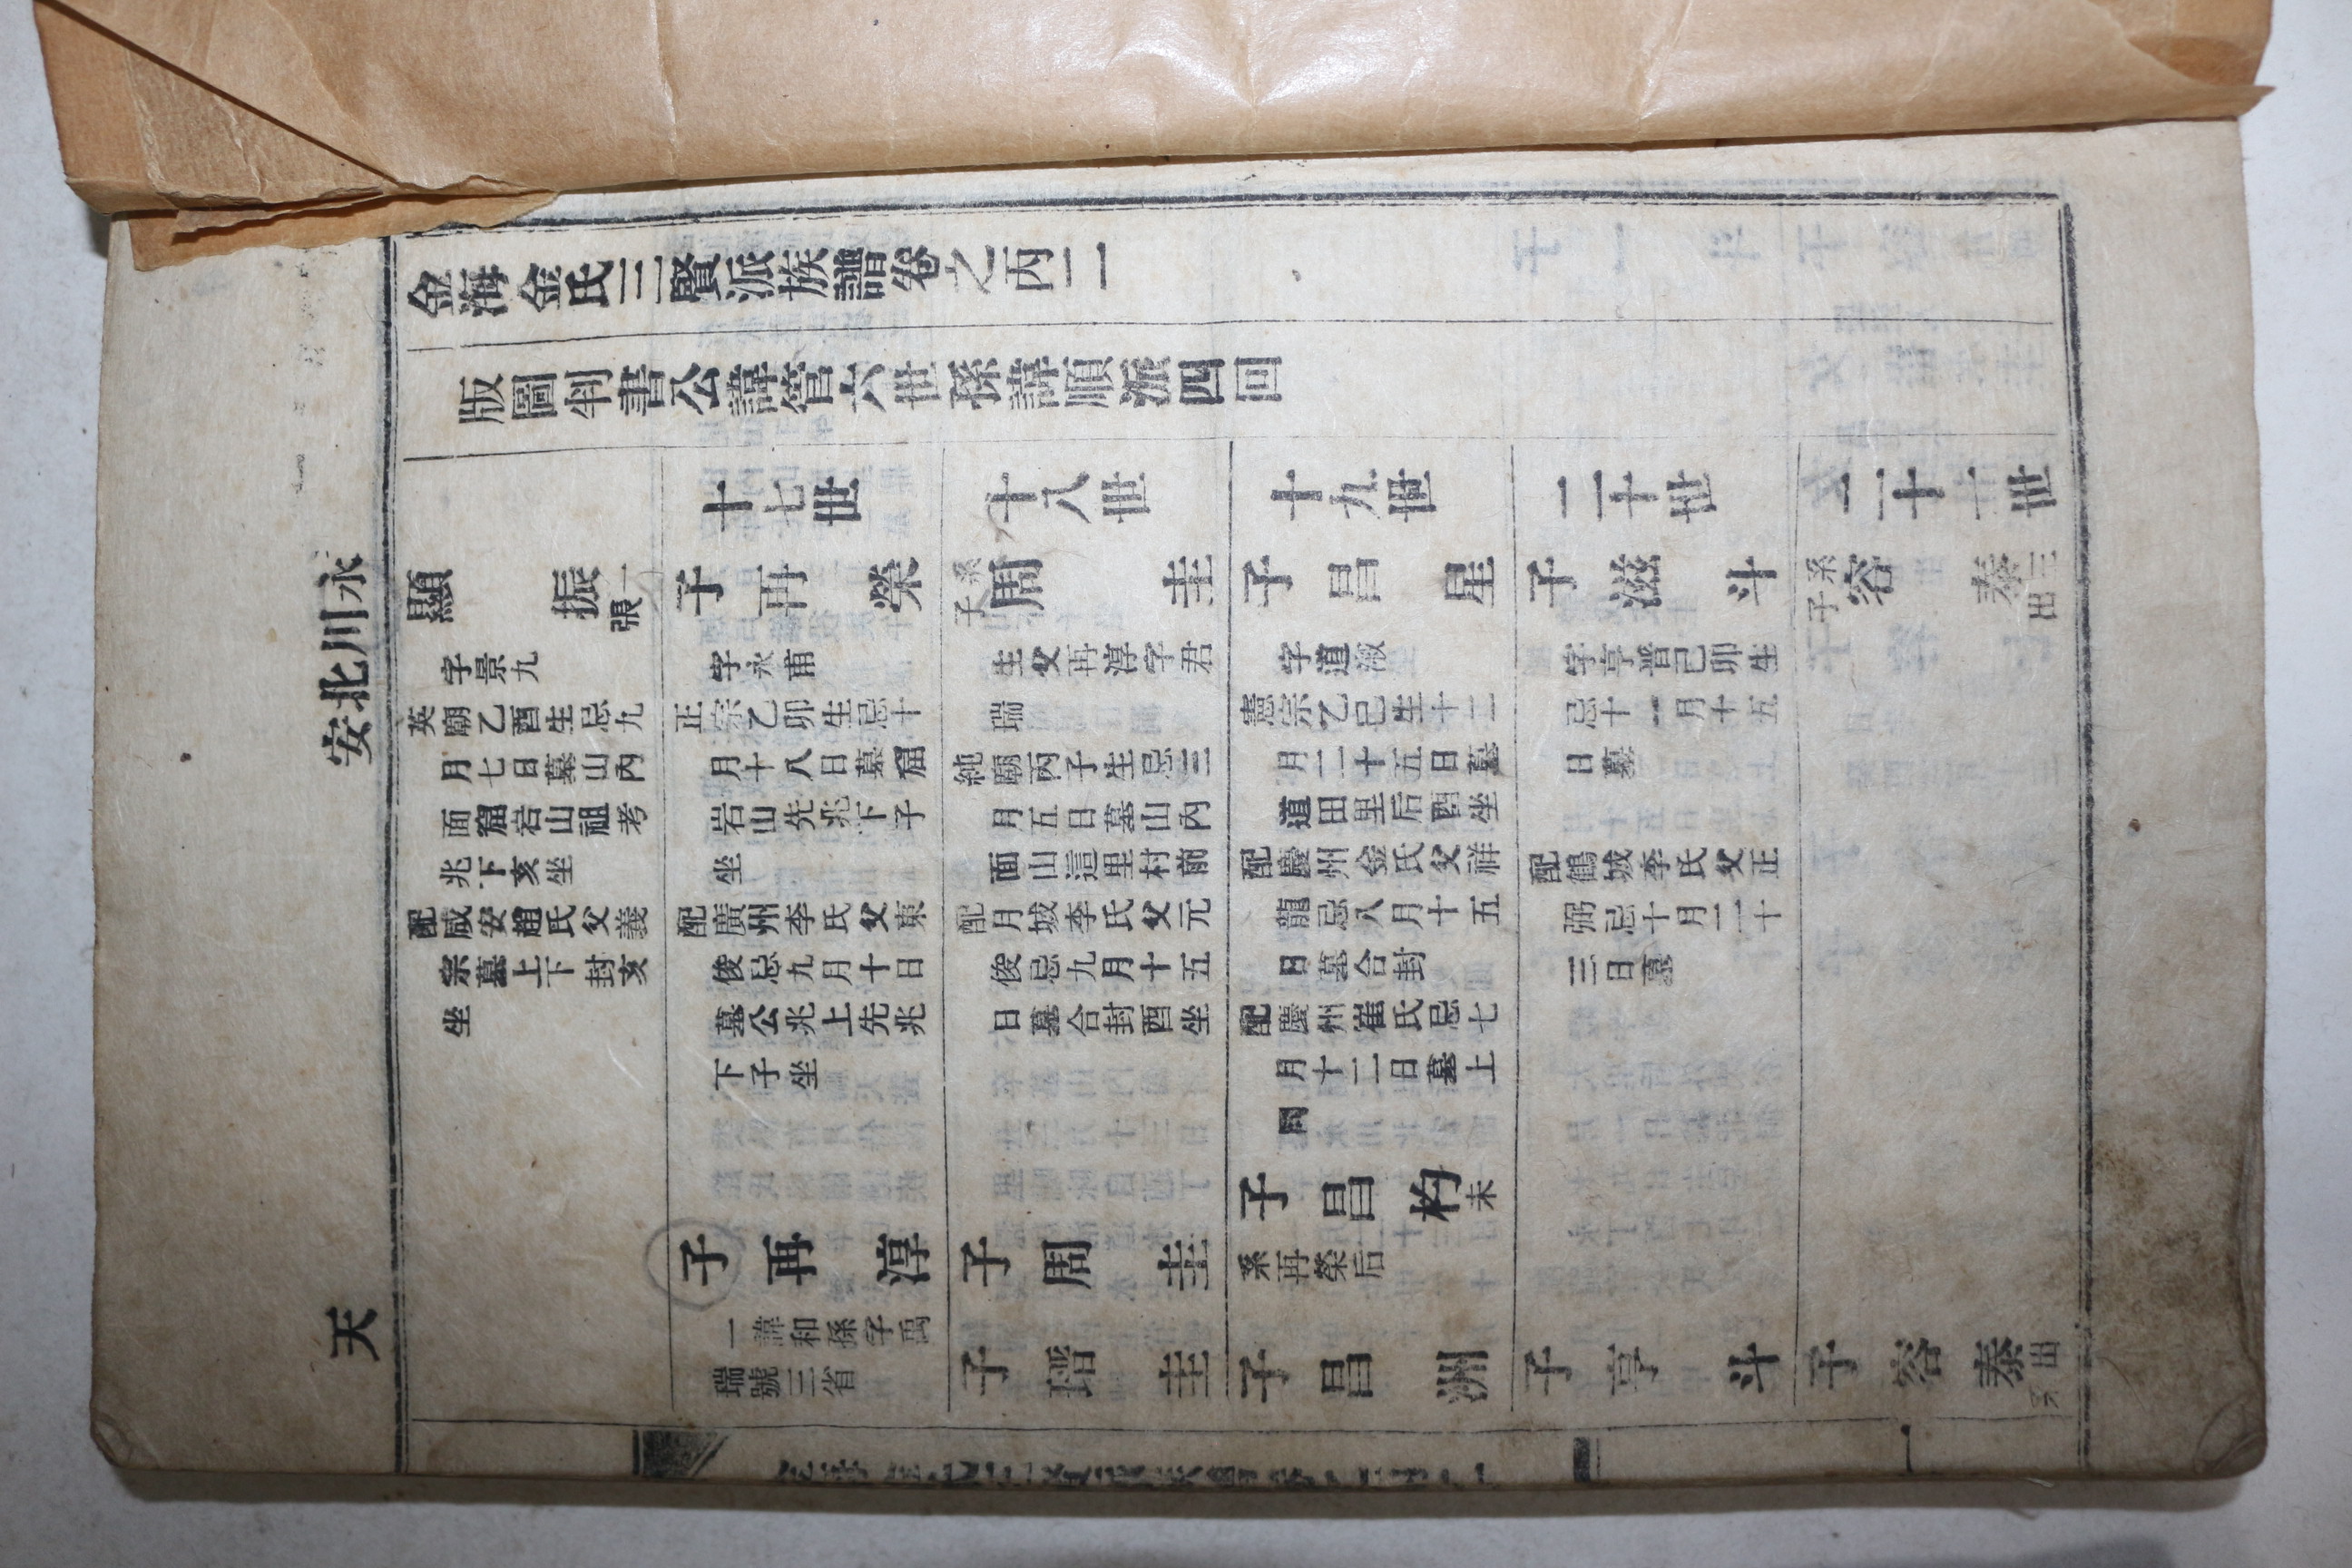 永川北安
天
金海金氏三賢派族譜卷之丙二
版圖判書公諱管六世孫諱順派四回
顯振
一張
字景九
英廟乙酉生忌九
月七日墓山內
面窟岩山祖考
兆下亥坐
配咸安趙氏父義
宗墓上下封亥
坐
十七世
子再榮
字永甫
正宗乙卯生忌十
月十八日墓窟
岩山先兆下子
坐
配廣州李氏父東
俊忌九月十日
墓公兆上先兆
下子坐
子再淳
一諱和孫字禹
瑞號三省
十八世
系子周圭
生父再淳字君
瑞
純廟丙子生忌三
月五日墓山內
面山這里村前
配月城李氏父元
俊忌九月十五
日墓合封酉坐
子周圭
子瑨圭
十九世
子昌星
字道淑
憲宗乙巳生十二
月二十五日墓
道田里后酉坐
配慶州金氏父祥
龍忌八月十五
日墓合封
配慶州崔氏忌七
月十二日墓上
同
子昌杓未
系再榮后
子昌洲
二十世
子滋斗
字亨普己卯生
忌十一月十五
日墓
配鶴城李氏父正
弼忌十月二十
三日墓
子亨斗
二十一世
系子容泰
三出
子容泰
出系
一